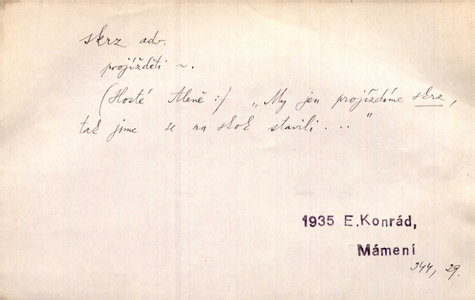 skrz adv.
projížděti ~.
(Hosté Aleně:) „My jen projíždíme skrz,
tak jsme se na skok stavili..."
1935 E.Konrád,
Mámení
244, 29.